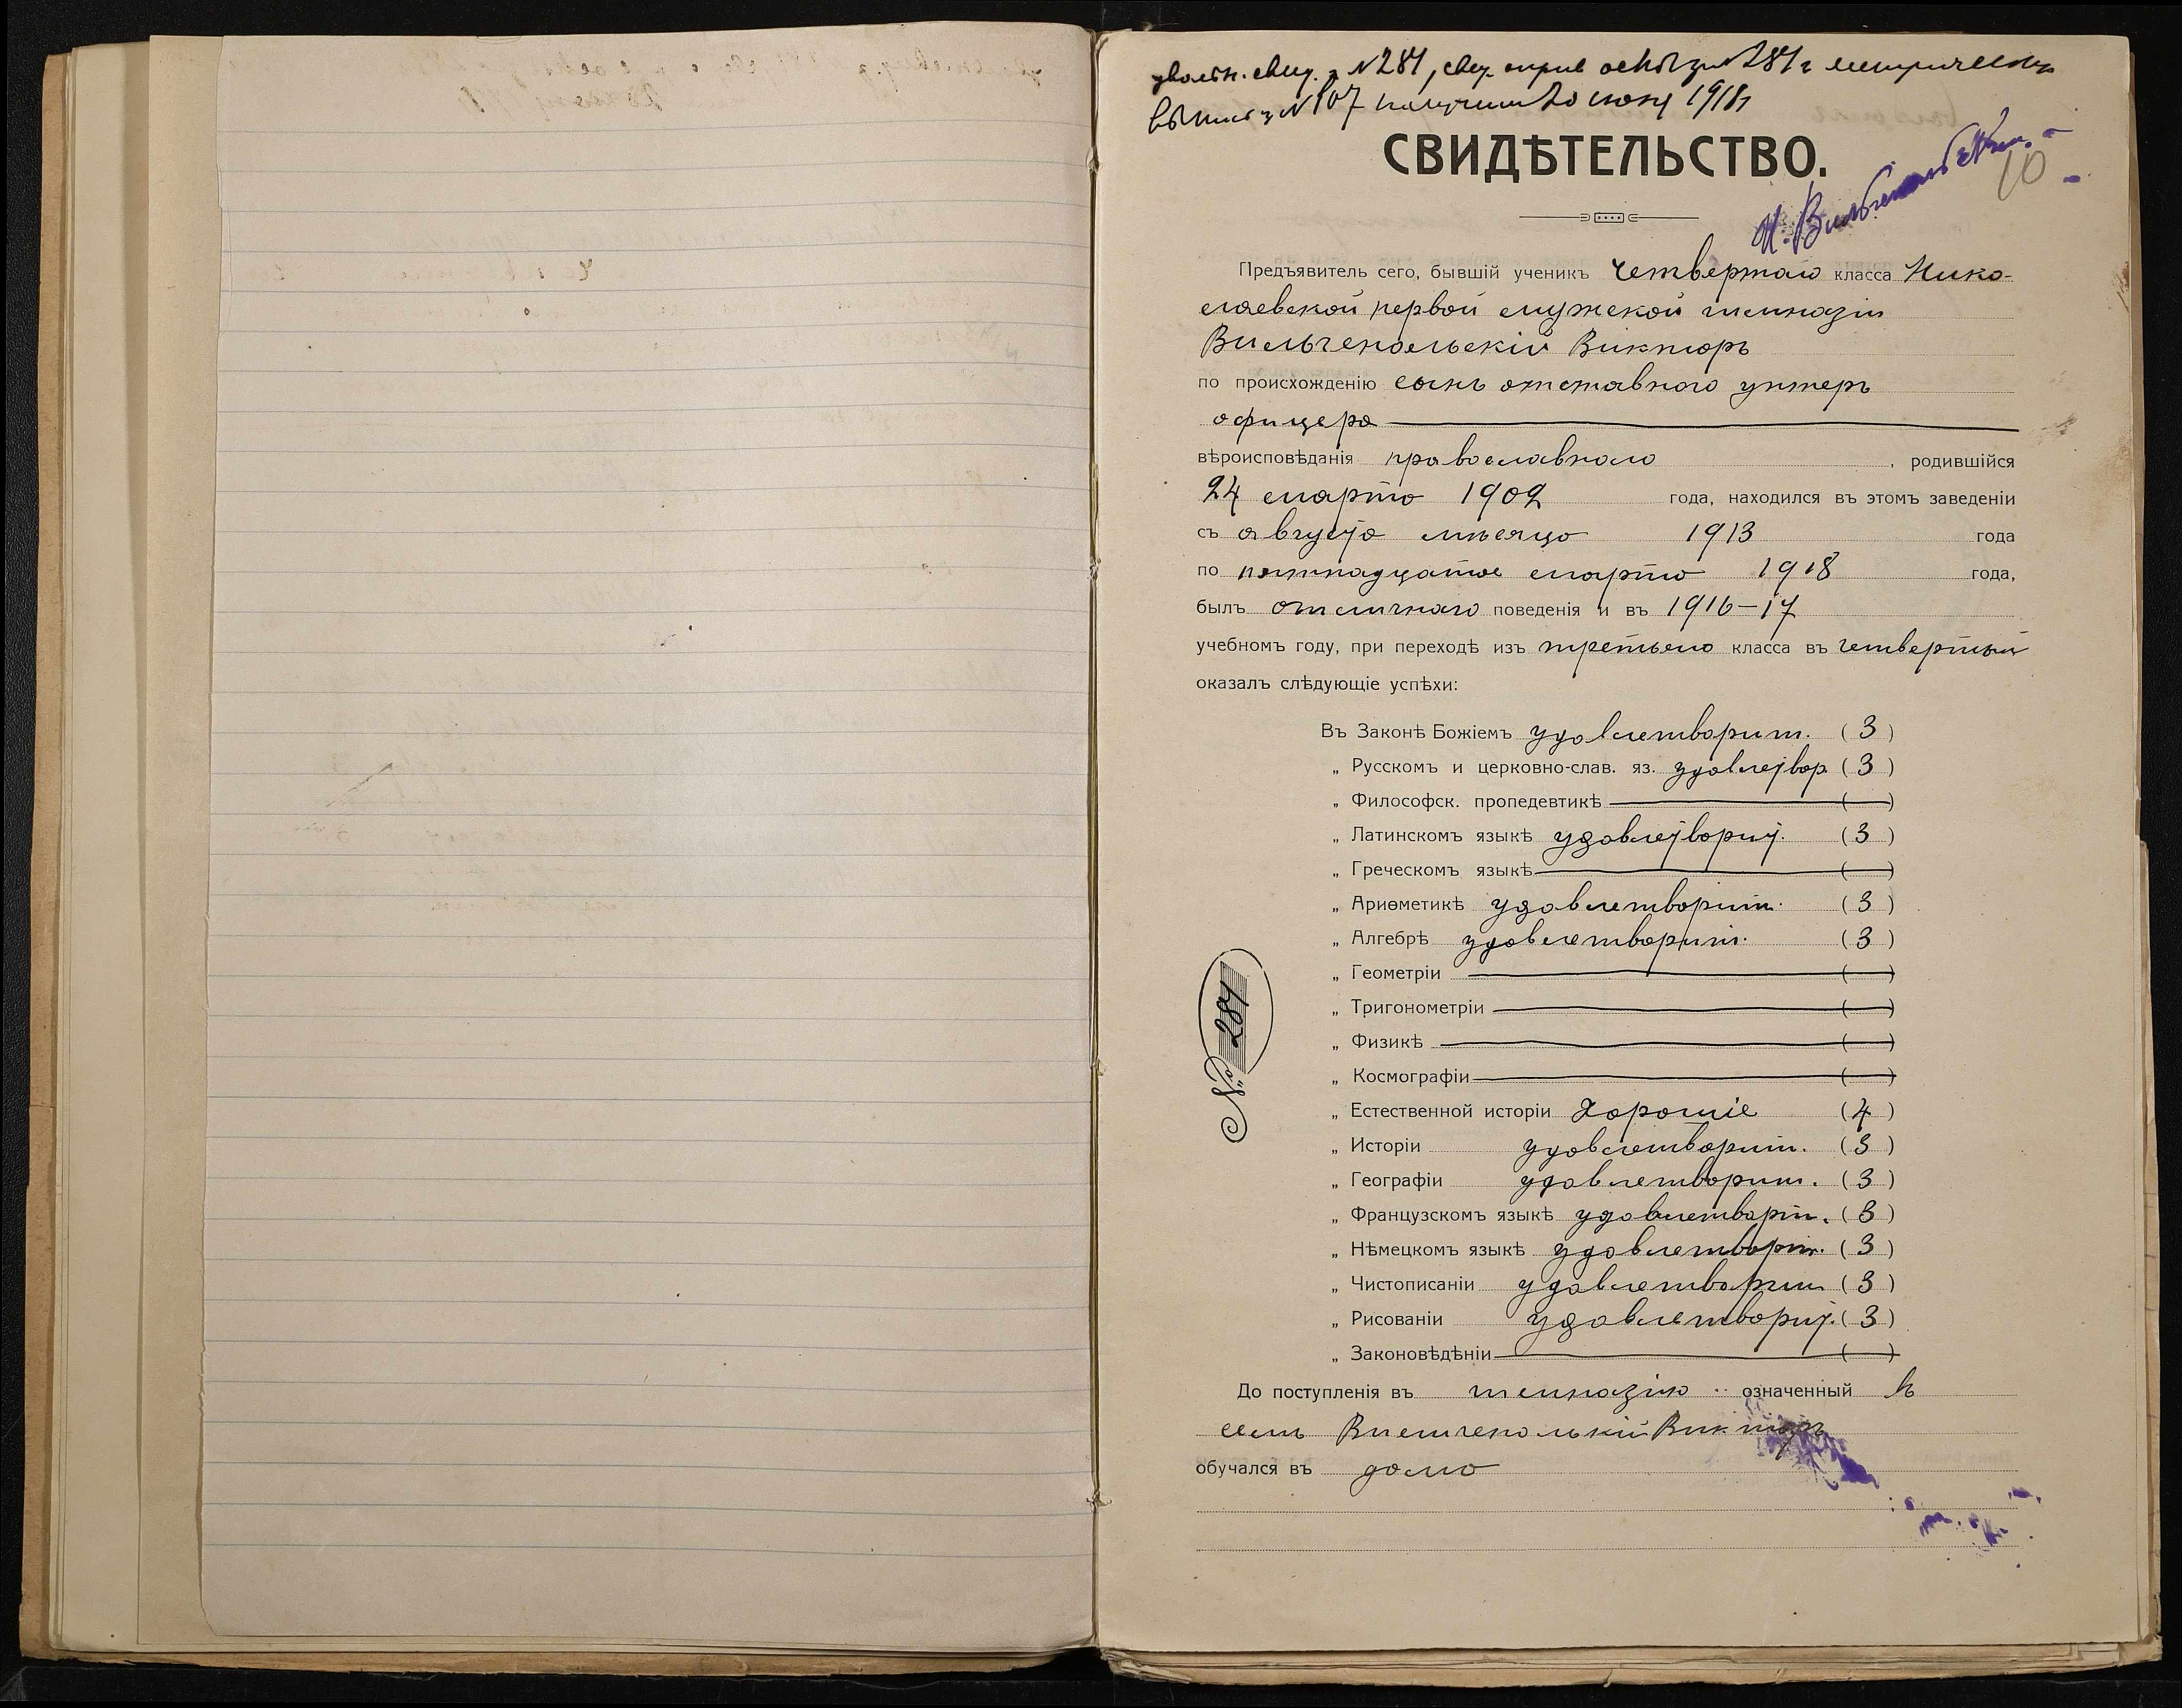 увольн. свид. з N 281, свид. о прив оспы за N 281 и метрическую
выпись з N 107 получил 20 июня 1918 г
СВИДѢТЕЛЬСТВО.
10
Предъявитель сего, бывшій ученикъ четвертаго класса Нико-
лаевской первой мужской гимназіи
Вильчепольскій Викторъ
по происхожденію сынъ отставного унтеръ
офицера
вѣроисповѣданія православнаго, родившійся
24 марта 1902 года, находился въ этомъ заведеніи
съ августа мѣсяца 1913 года
по пятнадцатое марта 1918 года,
былъ отличнаго поведенія и въ 1916–17
учебномъ году, при переходѣ изъ третьяго класса въ четвертый
оказалъ слѣдующіе успѣхи:
Въ Законѣ Божіемъ удовлетворит. (3)
„ Русскомъ и церковно-слав. яз. удовлетвор (3)
„ Философск. пропедевтикѣ — ( )
„ Латинскомъ языкѣ удовлетворит. (3)
„ Греческомъ языкѣ — ( )
„ Ариѳметикѣ удовлетворит. (3)
„ Алгебрѣ удовлетворит. (3)
„ Геометріи — ( )
„ Тригонометріи — ( )
„ Физикѣ — ( )
„ Космографіи — ( )
„ Естественной исторіи Хорошіе (4)
„ Исторіи удовлетворит. (3)
„ Географіи удовлетворит. (3)
„ Французскомъ языкѣ удовлетворит. (3)
„ Нѣмецкомъ языкѣ удовлетворит. (3)
„ Чистописаніи удовлетворит (3)
„ Рисованіи удовлетворит. (3)
„ Законовѣдѣніи — ( )
№ 281
До поступленія въ гимназію означенный въ
семъ Вильчепольскій Викторъ
обучался въ дома